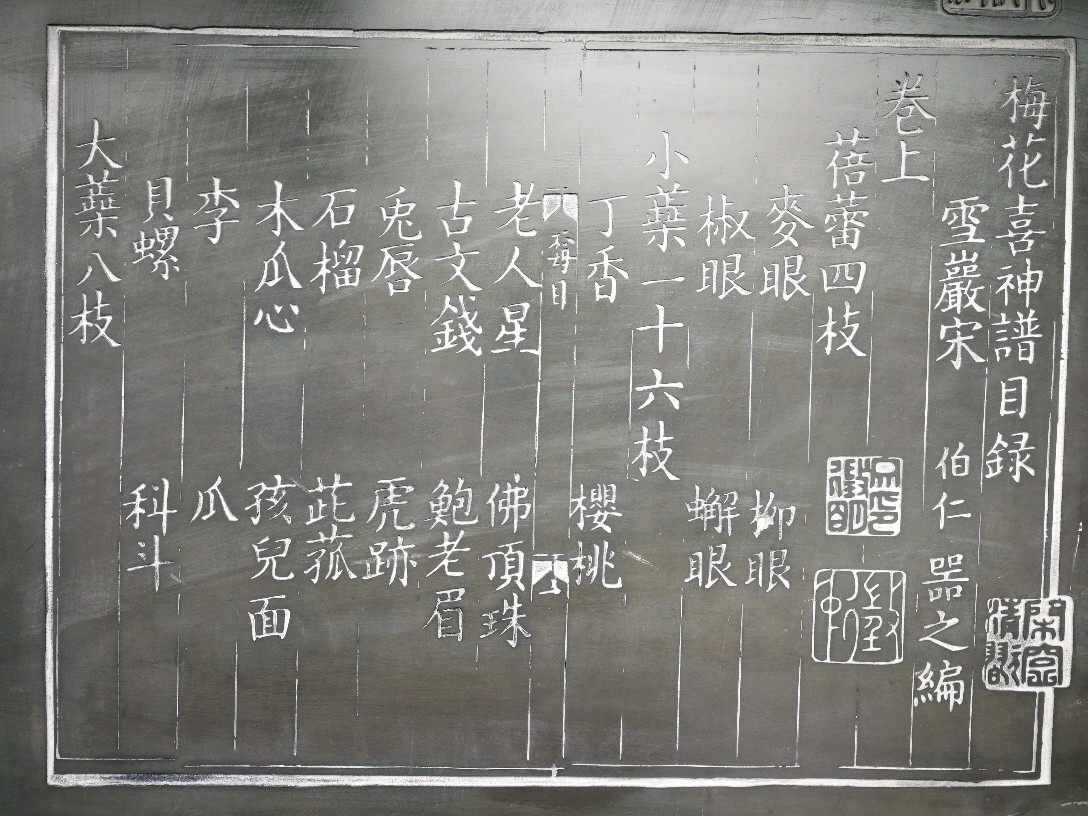 梅花喜神譜目録
雪巖宋 伯仁 器之編
巻上
蓓蕾四枝
麥眼 柳眼
椒眼 蠏眼
小蘂一十六枝
丁香 櫻桃
老人星 佛頂珠
古文錢 鮑老眉
兎唇 虎跡
石榴 茈菰
木瓜心 孩兒面
李 瓜
貝螺 科斗
大蘂八枝